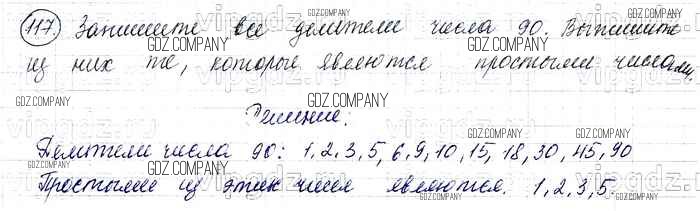 117. Запишите все делители числа 90. Выпишите
из них те, которые являются простыми числами.
Решение:
Делители числа 90: 1, 2, 3, 5, 6, 9, 10, 15, 18, 30, 45, 90
Простыми из этих чисел являются. 1, 2, 3, 5.
GDZ.COMPANY
vipgdz.ru